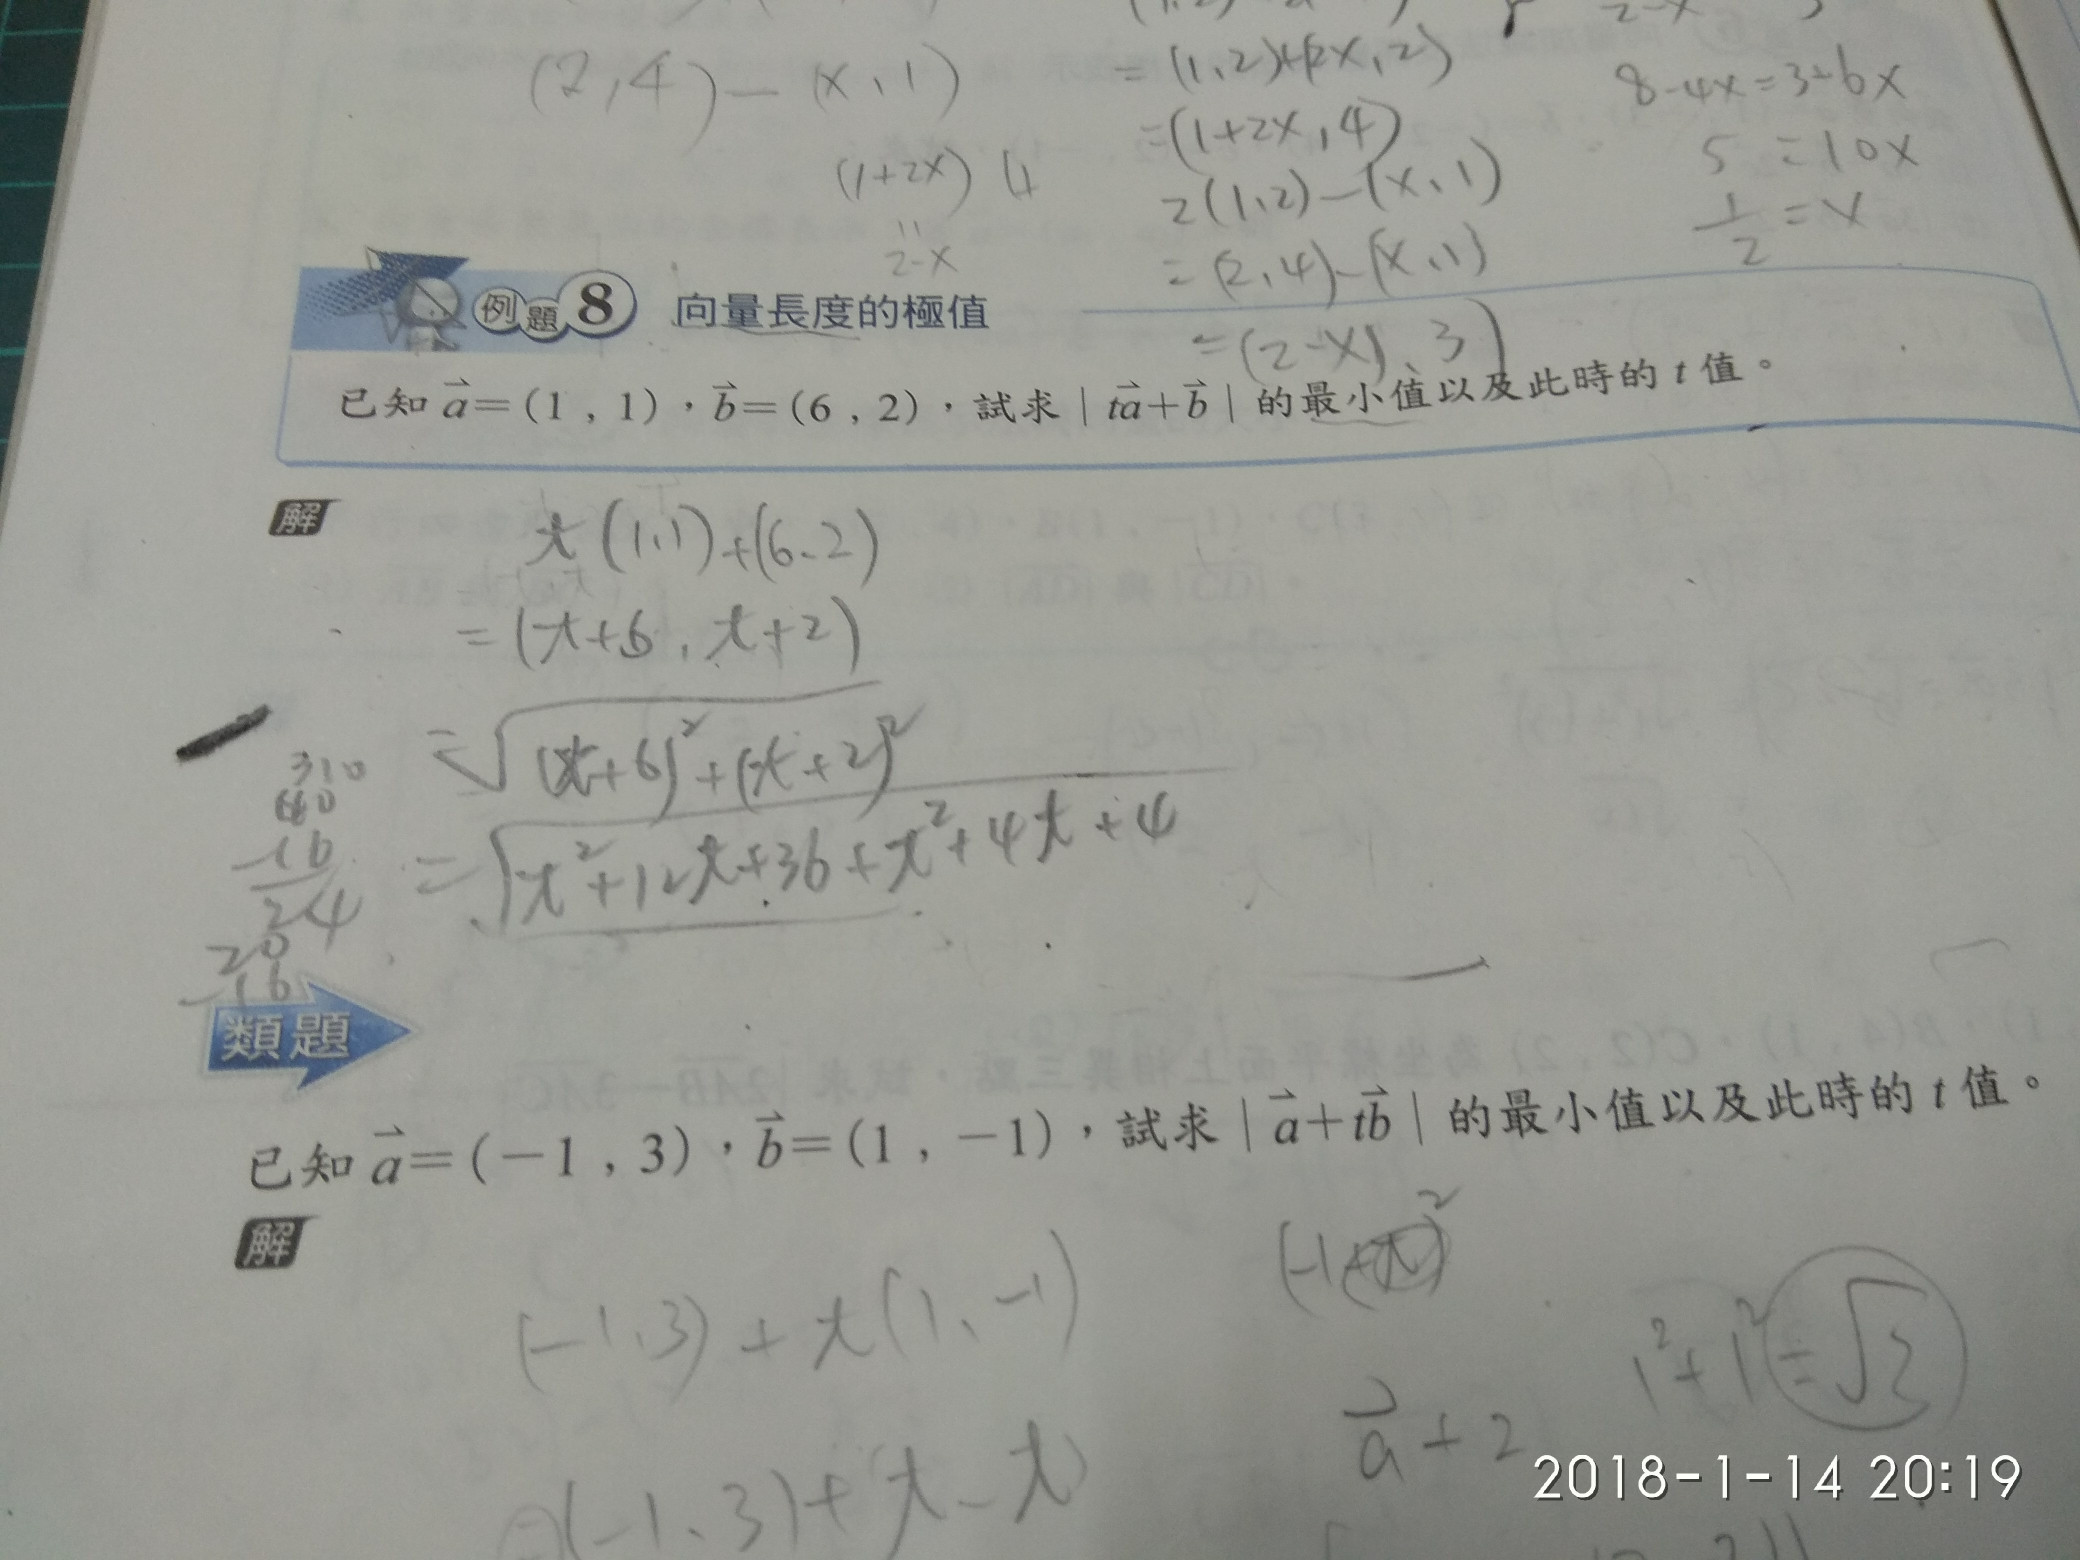 (2,4)-(x,1)
=(1,2)+(2x,2)
=(1+2x,4)
2(1,2)-(x,1)
=(2,4)-(x,1)
=(2-x),3)
2-x 3
8-4x=3+6x
5=10x
1/2=x
(1+2x) (4
"
2-x
例題8 向量長度的極值
已知 a⃗=(1,1),b⃗=(6,2),試求|ta⃗+b⃗|的最小值以及此時的 t 值。
解
t(1,1)+(6,2)
=(t+6,t+2)
=√(t+6)²+(t+2)²
=√t²+12t+36+t²+4t+4
310
40
-16
24
20
-16
類題
已知 a⃗=(-1,3),b⃗=(1,-1),試求|a⃗+tb⃗|的最小值以及此時的 t 值。
解
(-1,3)+t(1,-1)
=(-1,3)+(t-t)
(-1+t)²
1²+1²=√2
a⃗+2
2018-1-14 20:19